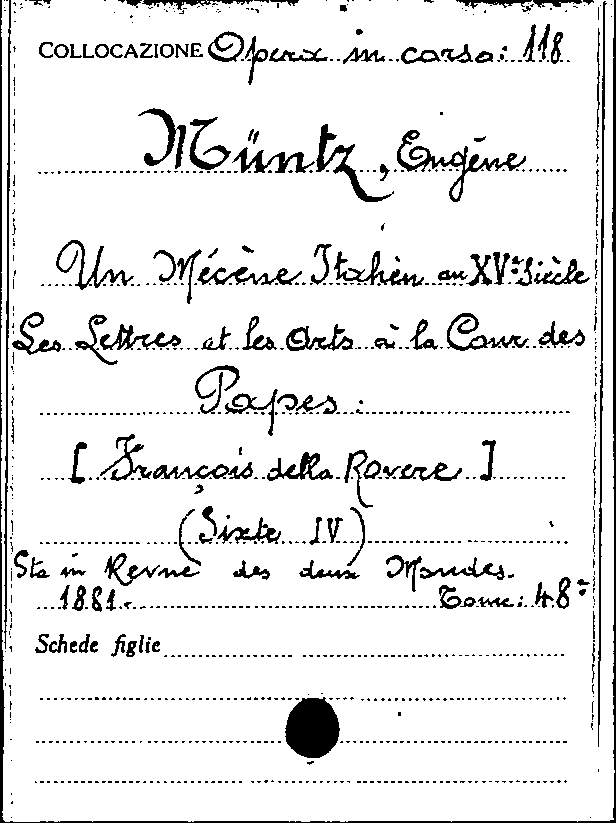 COLLOCAZIONE Opera in corso: 118
Müntz, Eugène
Un Mécène Italien au XVe Siècle
Les Lettres et les Arts à la Cour des
Papes:
[ François della Rovere ]
(Sixte IV)
Sta in Revue des deux Mondes.
1881. Tome: 48e
Schede figlie